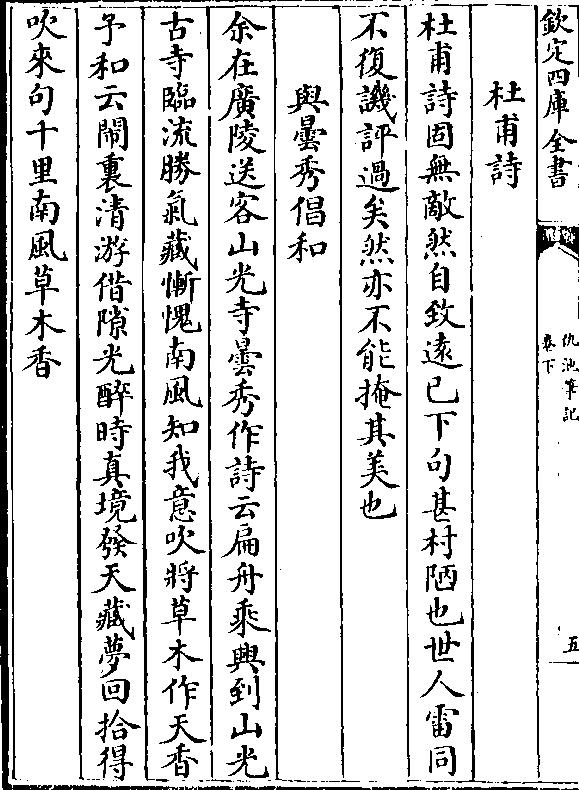 欽定四庫全書
仇池筆記
卷下
五
杜甫詩
杜甫詩固無敵然自致遠已下句甚村陋也世人雷同
不復譏評過矣然亦不能掩其美也
與曇秀倡和
余在廣陵送客山光寺曇秀作詩云扁舟乘興到山光
古寺臨流勝氣藏慚愧南風知我意吹將草木作天香
予和云閙裏清游借隙光醉時真境發天藏夢回拾得
吹來句十里南風草木香